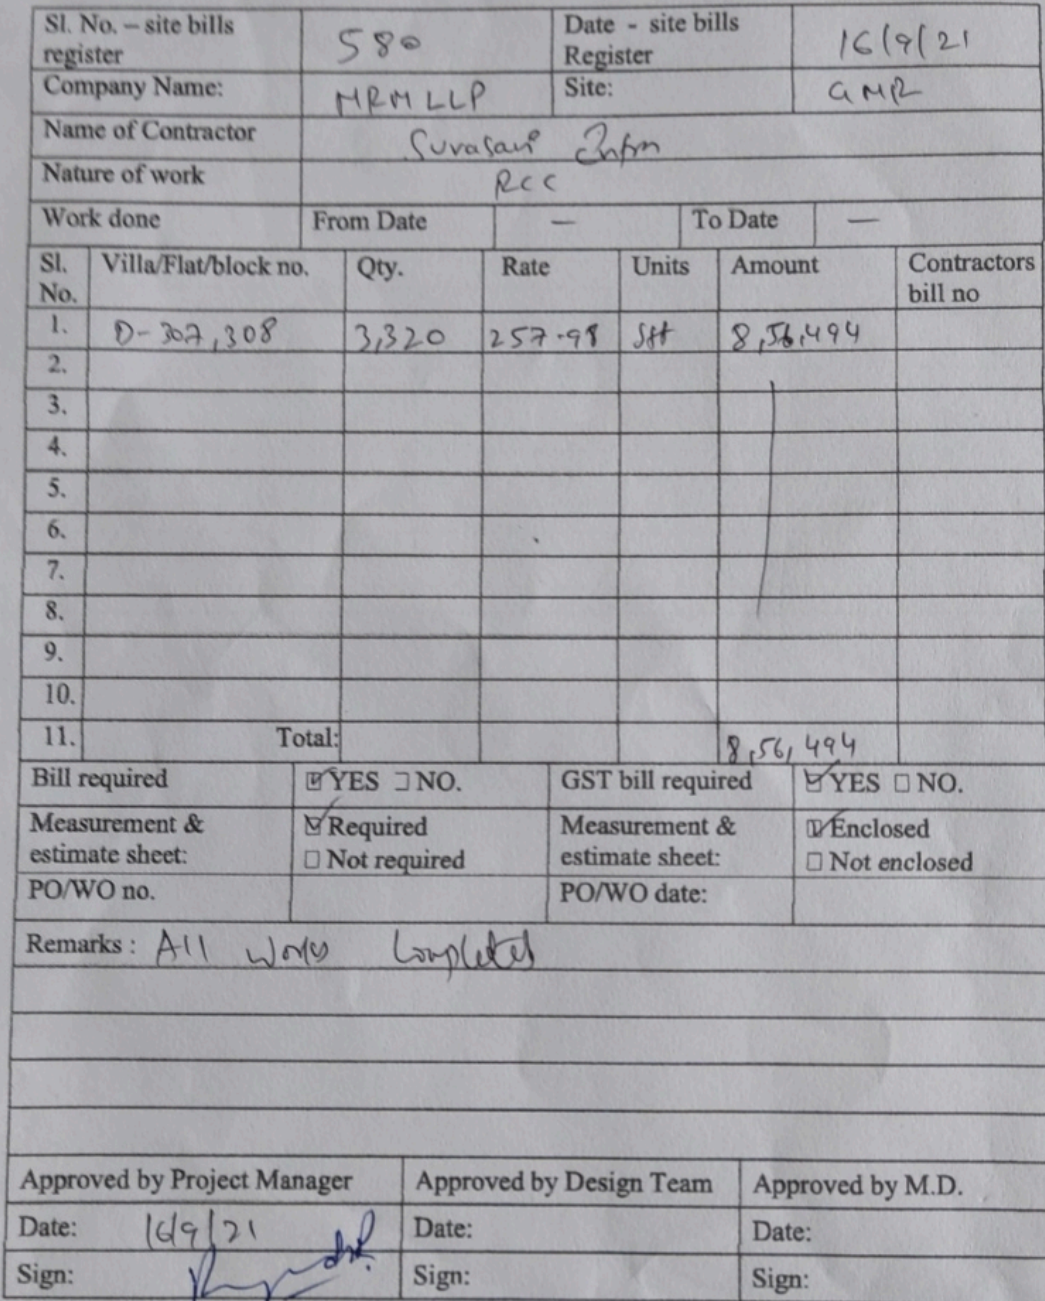 Sl. No. – site bills register 580 Date - site bills Register 16/9/21
Company Name: MRM LLP Site: GMR
Name of Contractor Suvasavi Infra
Nature of work RCC
Work done From Date — To Date —
Sl. No. Villa/Flat/block no. Qty. Rate Units Amount Contractors bill no
1. D-307,308 3,320 257.98 Sft 8,56,494
2.
3.
4.
5.
6.
7.
8.
9.
10.
11. Total: 8,56,494
Bill required ☑ YES ☐ NO. GST bill required ☑ YES ☐ NO.
Measurement & estimate sheet: ☑ Required ☐ Not required Measurement & estimate sheet: ☑ Enclosed ☐ Not enclosed
PO/WO no. PO/WO date:
Remarks : All works Completed
Approved by Project Manager Approved by Design Team Approved by M.D.
Date: 16/9/21 Date: Date:
Sign: Sign: Sign: